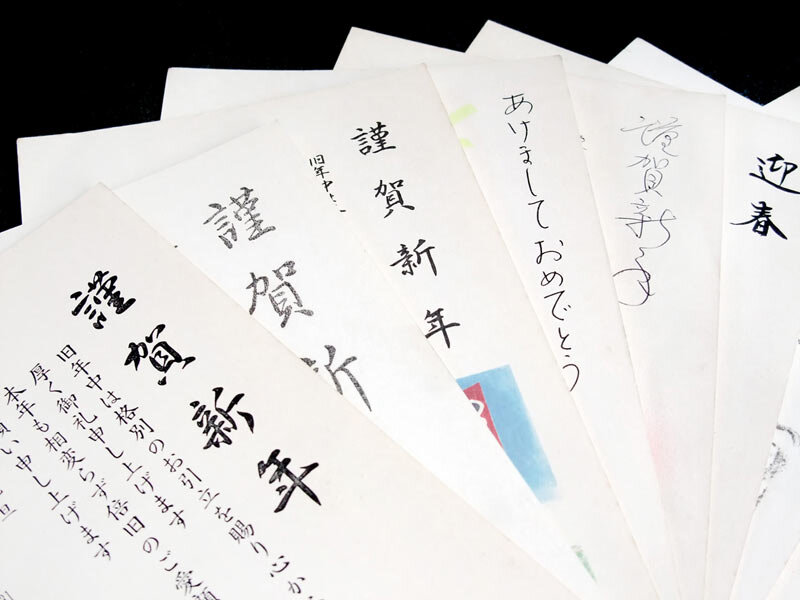 謹賀新年
旧年中は格別のお引立を賜り心か
厚く御礼申し上げます
本年も相変らず倍旧のご愛顧
願い申し上げます
謹賀新
謹賀新年
旧年中は
あけましておめでとう
謹賀新年
迎春